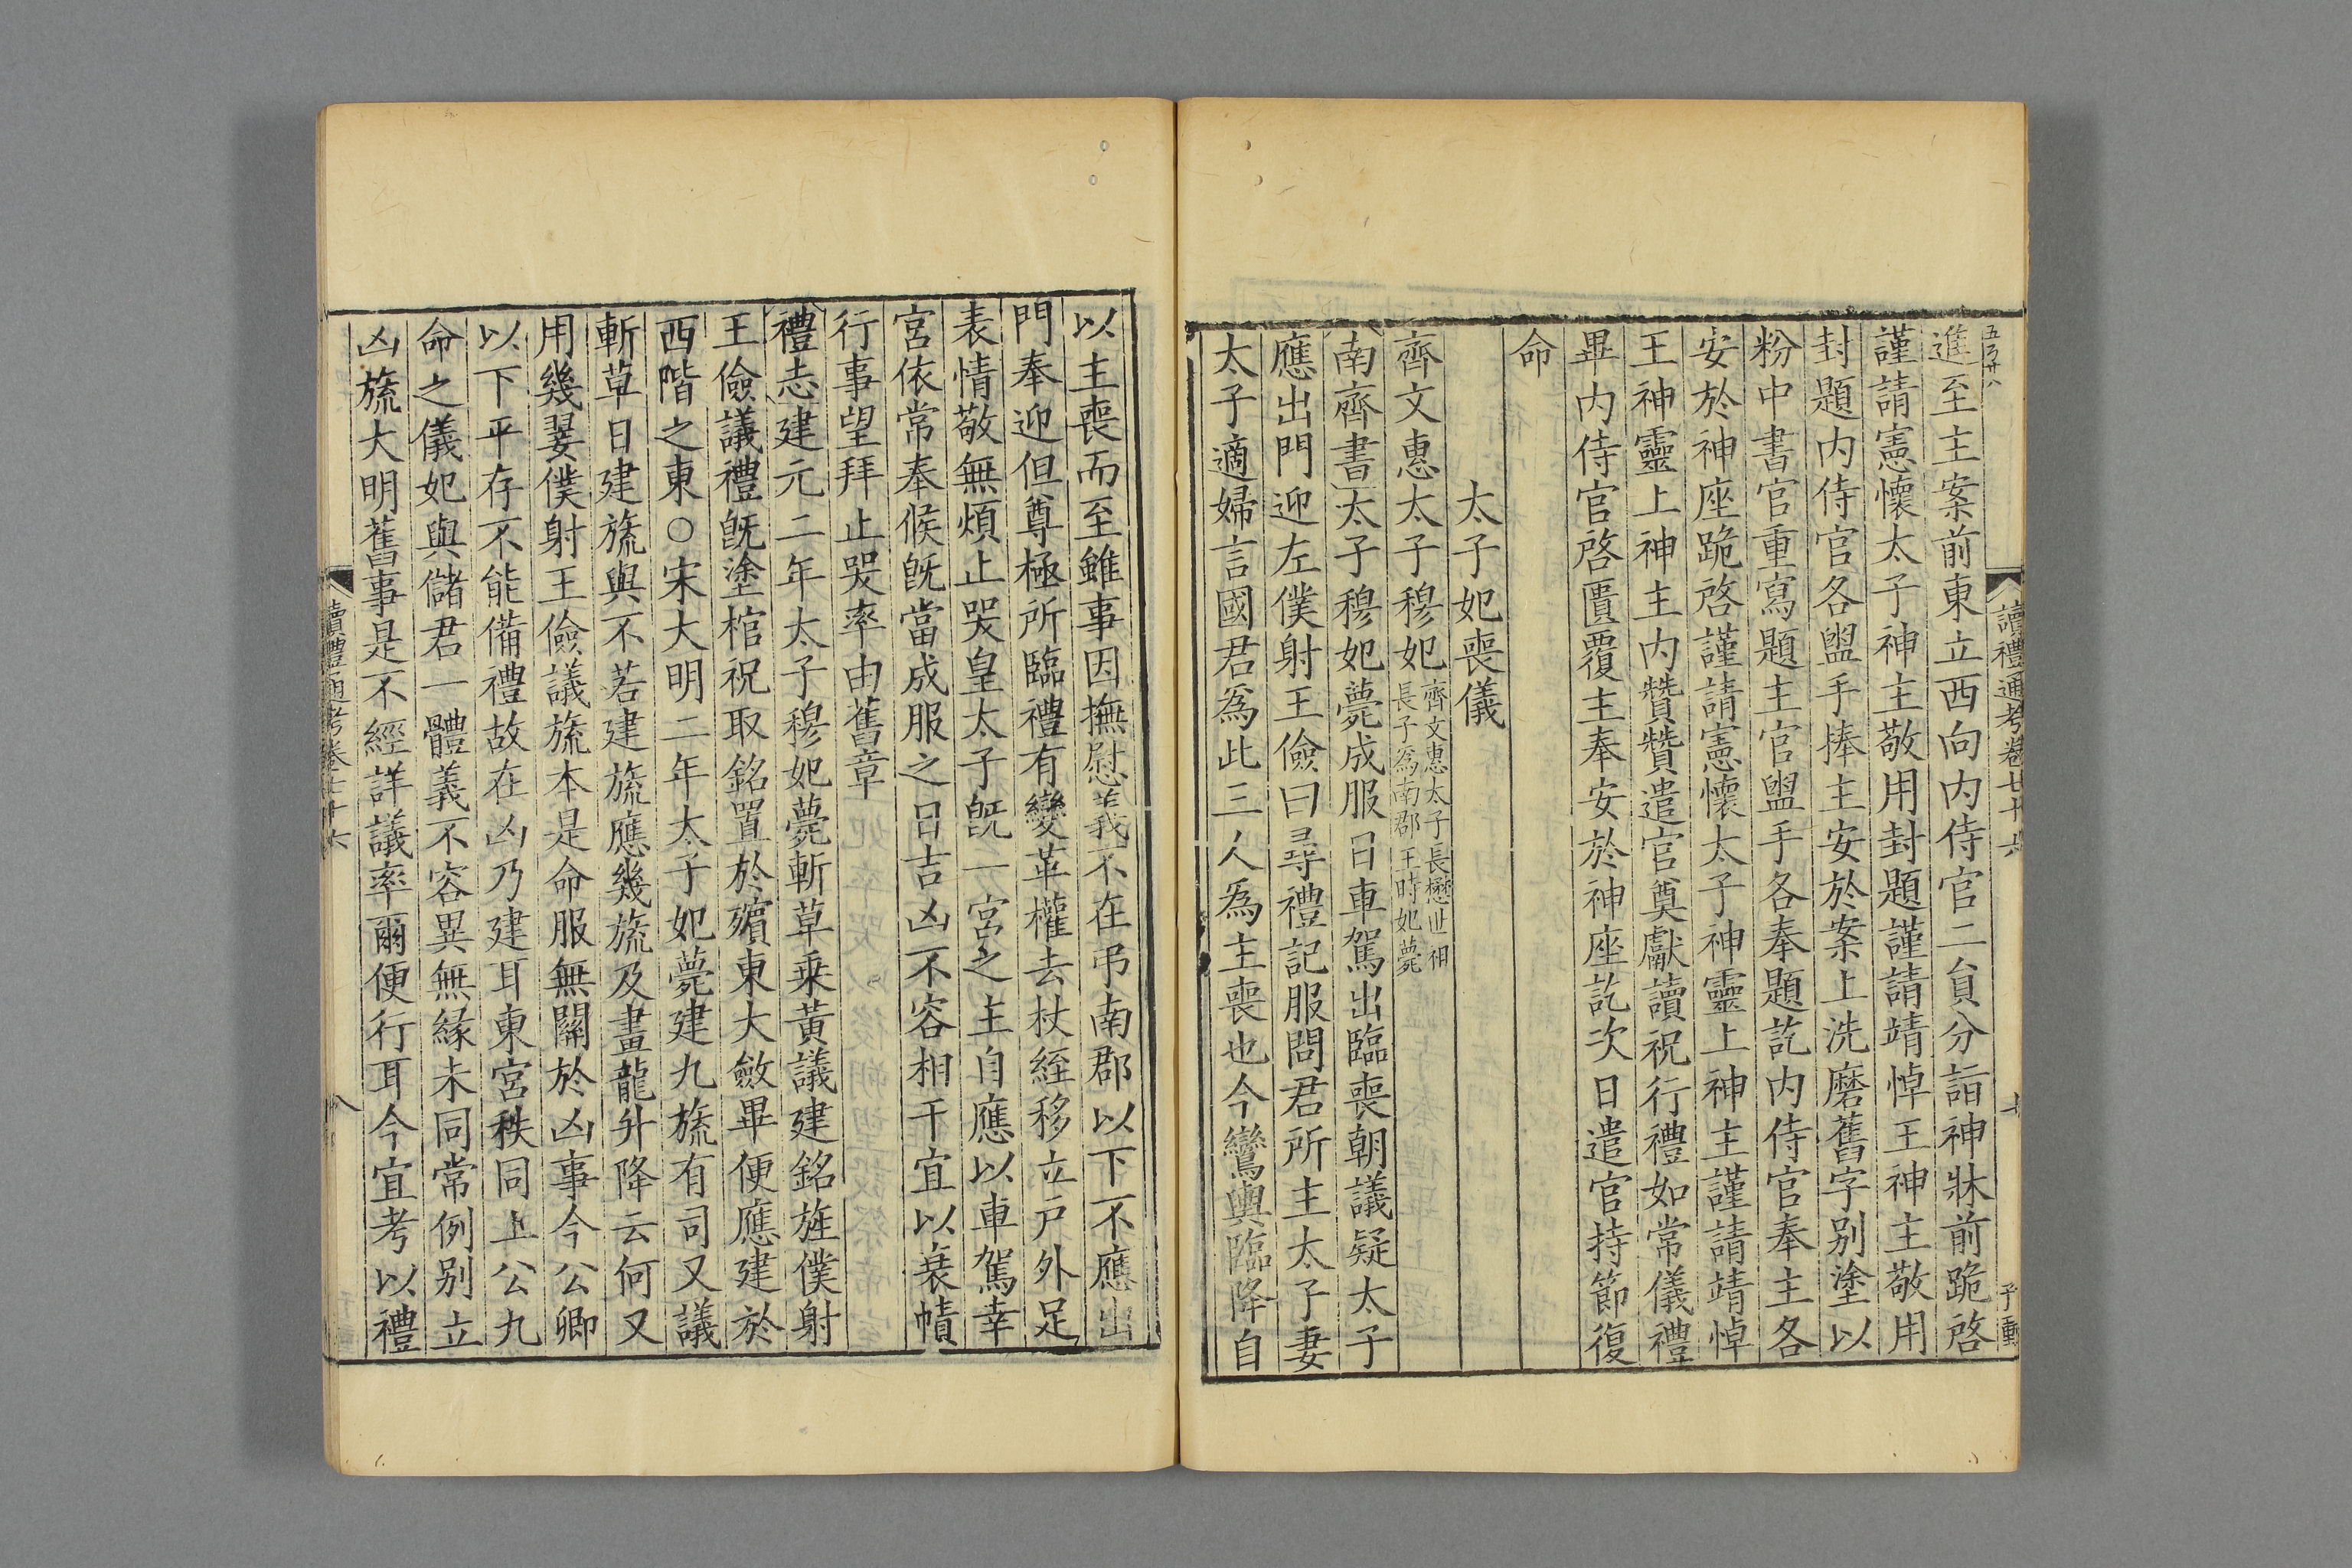 進至主案前東立西向内侍官二員分詣神牀前跪啓
謹請憲懷太子神主敬用封題謹請靖悼王神主敬用
封題内侍官各盥手捧主安於案上洗磨舊字别塗以
粉中書官重寫題主官盥手各奉題訖内侍官奉主各
安於神座跪啓謹請憲懷太子神靈上神主謹請靖悼
王神靈上神主内贊贊遣官奠獻讀祝行禮如常儀禮
畢内侍官啓匱覆主奉安於神座訖次日遣官持節復
命
太子妃喪儀
齊文惠太子穆妃齊文惠太子長懋世祖
長子爲南郡王時妃薨
南齊書太子穆妃薨成服日車駕出臨喪朝議疑太子
應出門迎左僕射王儉曰尋禮記服問君所主太子妻
太子適婦言國君爲此三人爲主喪也今鸞輿臨降自
以主喪而至雖事因撫慰義不在弔南郡以下不應出
門奉迎但尊極所臨禮有變革權去杖絰移立戸外足
表情敬無煩止哭皇太子旣一宮之主自應以車駕幸
宮依常奉候旣當成服之日吉凶不容相干宜以衰幘
行事望拜止哭率由舊章
禮志建元二年太子穆妃薨斬草乗黃議建銘旌僕射
王儉議禮旣塗棺祝取銘置於殯東大斂畢便應建於
西階之東○宋大明二年太子妃薨建九旒有司又議
斬草日建旒與不若建旒應幾旒及畫龍升降云何又
用幾翣僕射王儉議旒本是命服無關於凶事今公卿
以下平存不能備禮故在凶乃建耳東宮秩同上公九
命之儀妃與儲君一體義不容異無緣未同常例别立
凶旒大明舊事是不經詳議率爾便行耳今宜考以禮
讀禮通考卷七十六
八